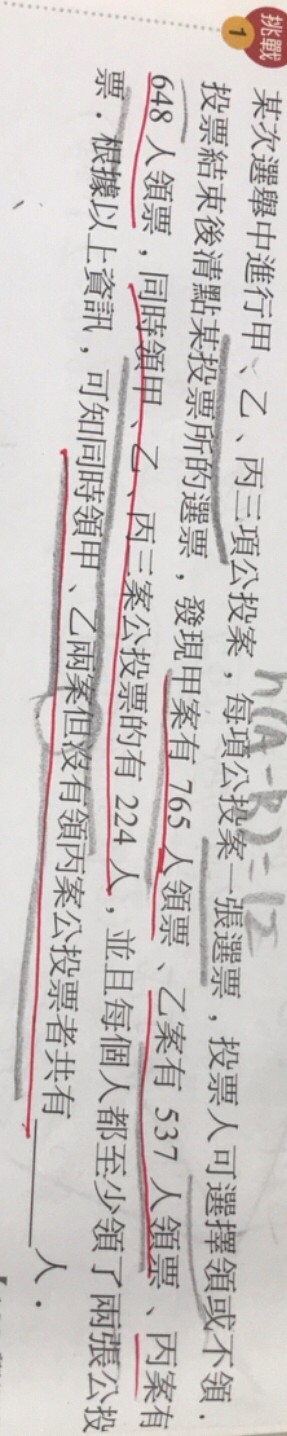 挑戰
1
某次選舉中進行甲、乙、丙三項公投案，每項公投案一張選票，投票人可選擇領或不領．
投票結束後清點某投票所的選票，發現甲案有 765 人領票、乙案有 537 人領票、丙案有
648 人領票，同時領甲、乙、丙三案公投票的有 224 人，並且每個人都至少領了兩張公投
票．根據以上資訊，可知同時領甲、乙兩案但沒有領丙案公投票者共有＿＿＿人．
n(A-B)=12